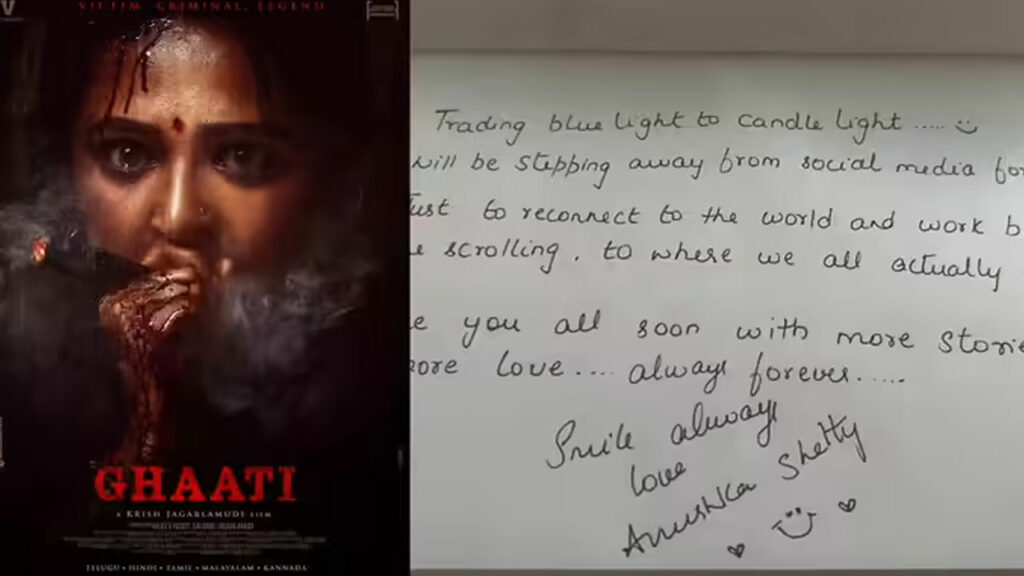 VICTIM. CRIMINAL. LEGEND
GHAATI
A KRISH JAGARLAMUDI FILM
TELUGU • HINDI • TAMIL • MALAYALAM • KANNADA
Trading blue light to candle light .....
will be stepping away from social media for
Just to reconnect to the world and work b
scrolling, to where we all actually
you all soon with more storie
ore love.... always forever.....
Smile always
love
Anushka Shetty